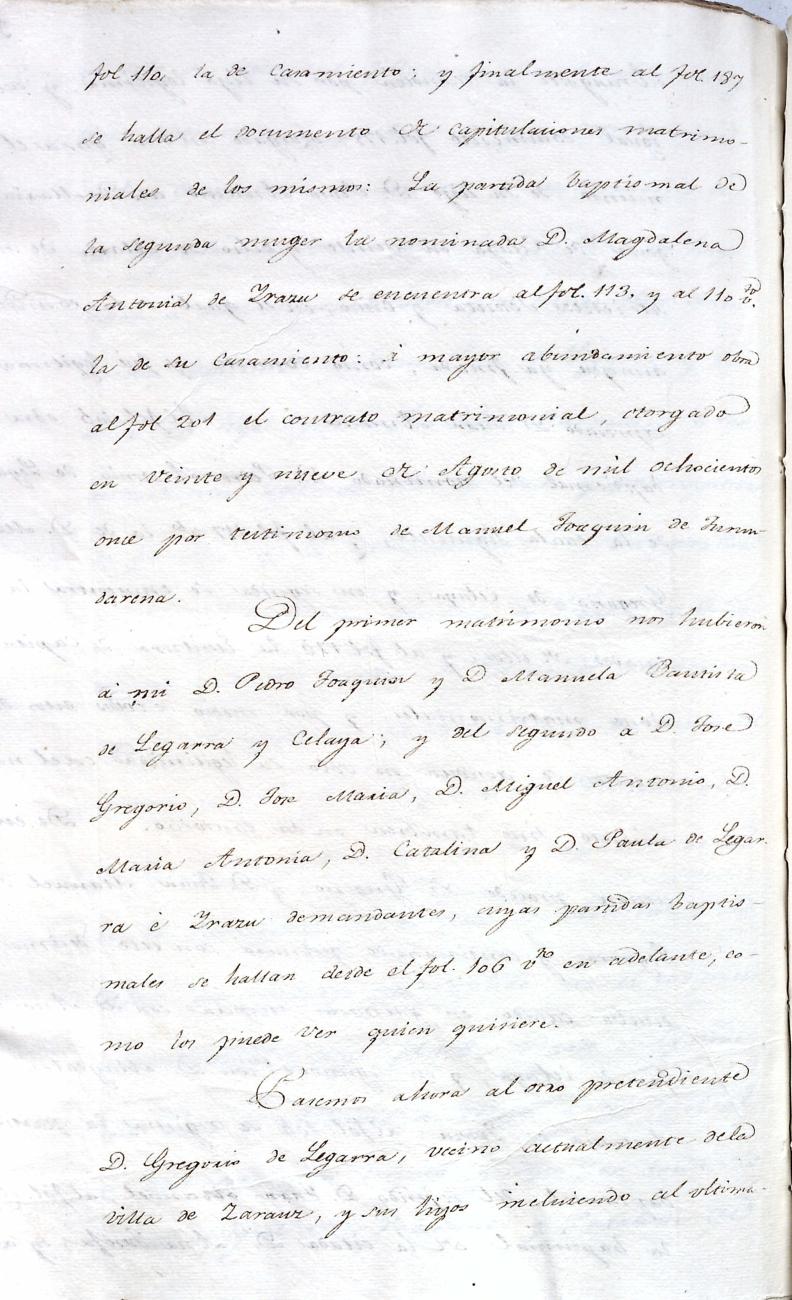 fol 110. la de casamiento: y finalmente al fol. 187
se halla el documento de capitulaciones matrimo-
niales de los mismos: La partida baptismal de
la segunda muger la nominada D. Magdalena
Antonia de Yrazu se encuentra al fol. 113. y al 110 vto.
la de su casamiento: á mayor abundamiento obra
al fol 201 el contrato matrimonial, otorgado
en veinte y nueve de Agosto de mil ochocientos
once por testimonio de Manuel Joaquin de Furun-
darena.
Del primer matrimonio nos hubieron
á mi D. Pedro Joaquin y D Manuela Bautista
de Legarra y Celaya; y del segundo a D. Jose
Gregorio, D. Jose Maria, D. Miguel Antonio, D.
Maria Antonia, D. Catalina y D. Paula de Legar-
ra é Yrazu demandantes, cuyas partidas baptis-
males se hallan desde el fol. 106 vto en adelante, co-
mo los puede ver quien quisiere.
Pasemos ahora al otro pretendiente
D. Gregorio de Legarra, vecino actualmente de la
villa de Zarauz, y sus hijos incluiendo al ultima-